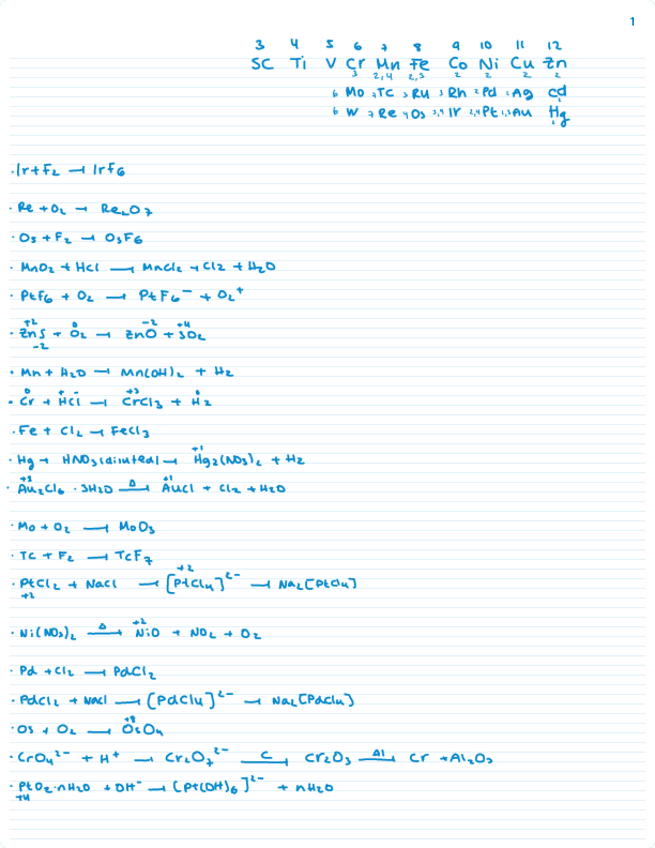 1
3 4 5 6 7 8 9 10 11 12
SC Ti V Cr Mn Fe Co Ni Cu Zn
3 2,4 2,3 2 2 2 2
6 Mo 7 TC 3 Ru 3 Rh 2 Pd 1 Ag Cd
6 W 7 Re 4 Os 3,4 Ir 2,4 Pt 1,3 Au Hg
· Ir + F₂ → IrF₆
· Re + O₂ → Re₂O₇
· Os + F₂ → OsF₆
· MnO₂ + HCl → MnCl₂ + Cl₂ + H₂O
· PtF₆ + O₂ → PtF₆⁻ + O₂⁺
+2 0 -2 +4
· ZnS + O₂ → ZnO + SO₂
-2
· Mn + H₂O → Mn(OH)₂ + H₂
0 + - +3 0
· Cr + HCl → CrCl₃ + H₂
· Fe + Cl₂ → FeCl₃
+1
· Hg + HNO₃ (diluted) → Hg₂(NO₃)₂ + H₂
+3 +1
· Au₂Cl₆ · 3H₂O Δ→ AuCl + Cl₂ + H₂O
· Mo + O₂ → MoO₃
· TC + F₂ → TcF₇
+2
· PtCl₂ + NaCl → [PtCl₄]²⁻ → Na₂[PtCl₄]
+2
+2
· Ni(NO₃)₂ Δ→ NiO + NO₂ + O₂
· Pd + Cl₂ → PdCl₂
· PdCl₂ + NaCl → [PdCl₄]²⁻ → Na₂[PdCl₄]
+8
· Os + O₂ → OsO₄
· CrO₄²⁻ + H⁺ → Cr₂O₇²⁻ C→ Cr₂O₃ Al→ Cr + Al₂O₃
· PtO₂·nH₂O + OH⁻ → [Pt(OH)₆]²⁻ + nH₂O
+4